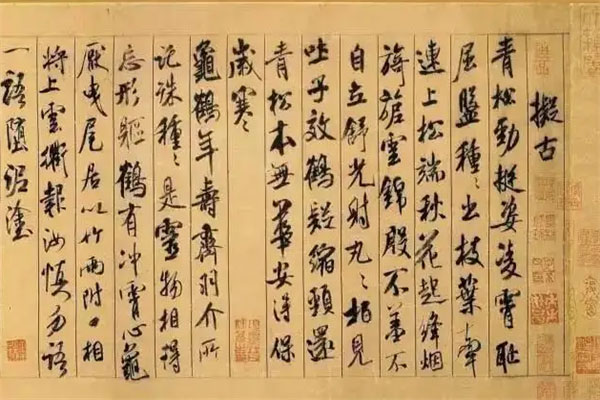 擬古
青松勁挺姿凌霄恥
屈盤種々出枝葉牽
連上松端秋花起絳烟
旖旎雲錦殷不羞不
自立舒光射丸々柏見
吐子效鶴疑縮頸還
青松本無華安得保
歲寒々
龜鶴年壽齊羽介所
託殊種々是靈物相得
忘形軀鶴有冲霄心龜
厭曳尾居以竹兩附口相
將上雲衢報汝慎勿語
一語墮泥塗